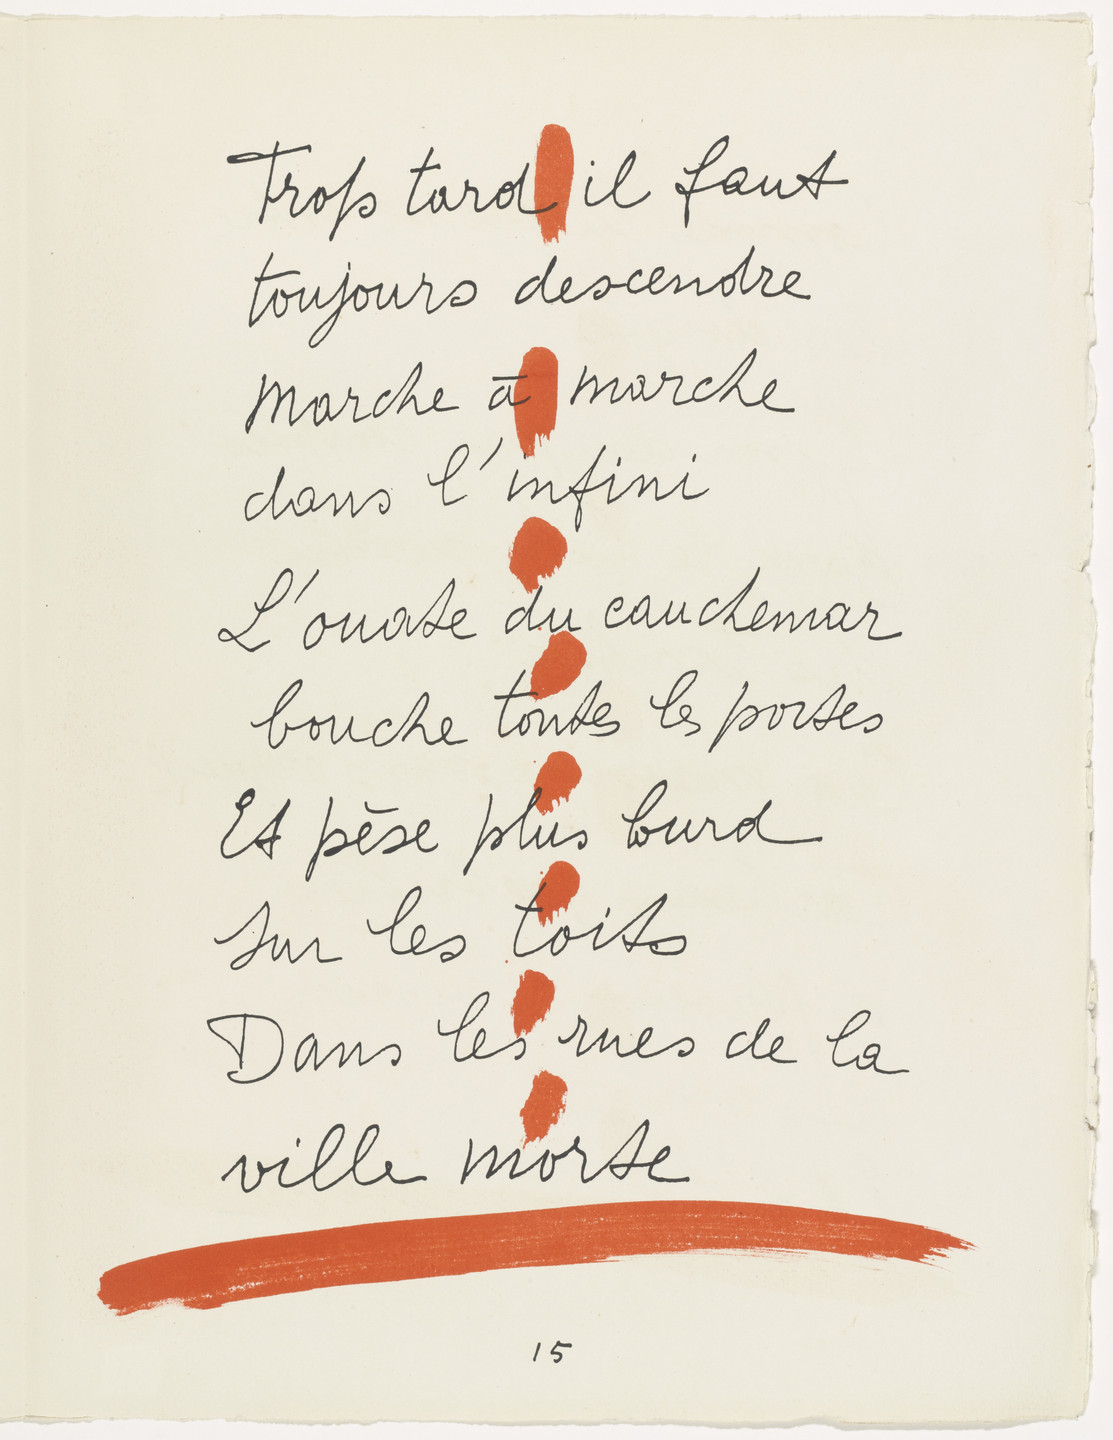 Trop tard il faut
toujours descendre
Marche à marche
dans l'infini
L'ouate du cauchemar
bouche toutes les portes
Et pèse plus lourd
sur les toits
Dans les rues de la
ville morte
15